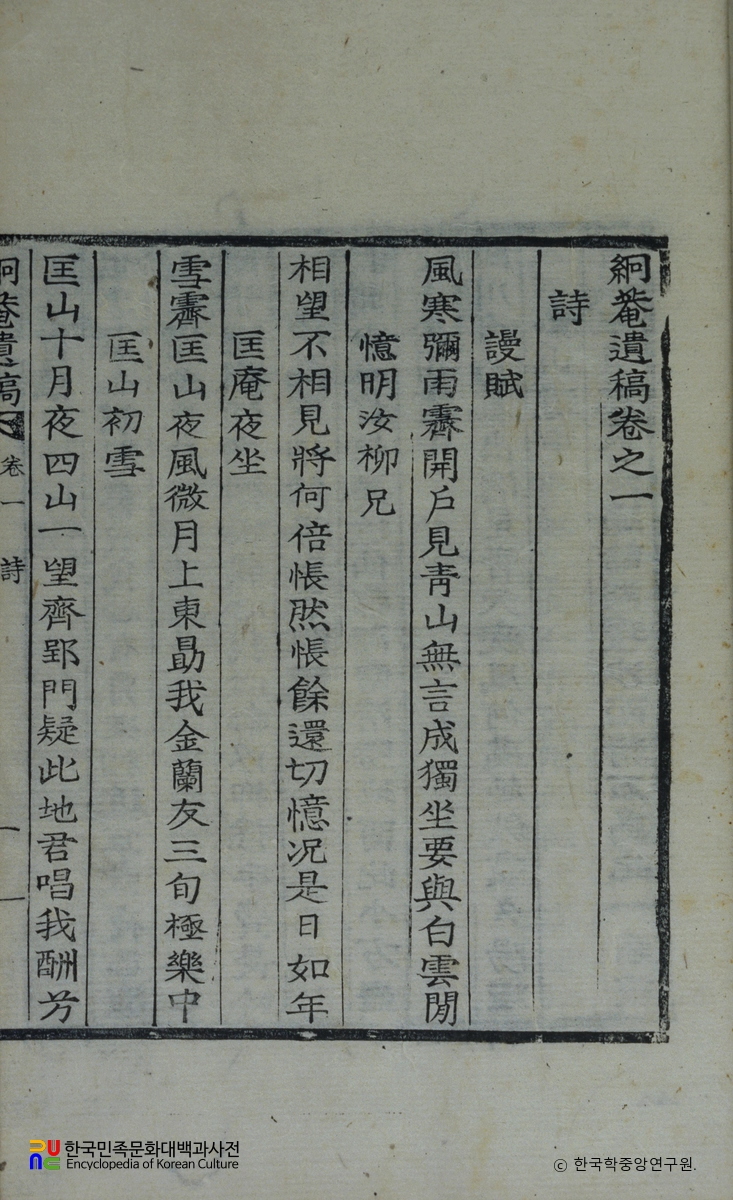 絅菴遺稿卷之一
詩
謾賦
風寒彌雨霽開戶見靑山無言成獨坐要與白雲閒
憶明汝柳兄
相望不相見將何倍悵然悵餘還切憶况是日如年
匡庵夜坐
雪霽匡山夜風微月上東勗我金蘭友三旬極樂中
匡山初雪
匡山十月夜四山一望齊郢門疑此地君唱我酬兮
絅菴遺稿 卷一 詩 一
한국민족문화대백과사전
Encyclopedia of Korean Culture
ⓒ 한국학중앙연구원.